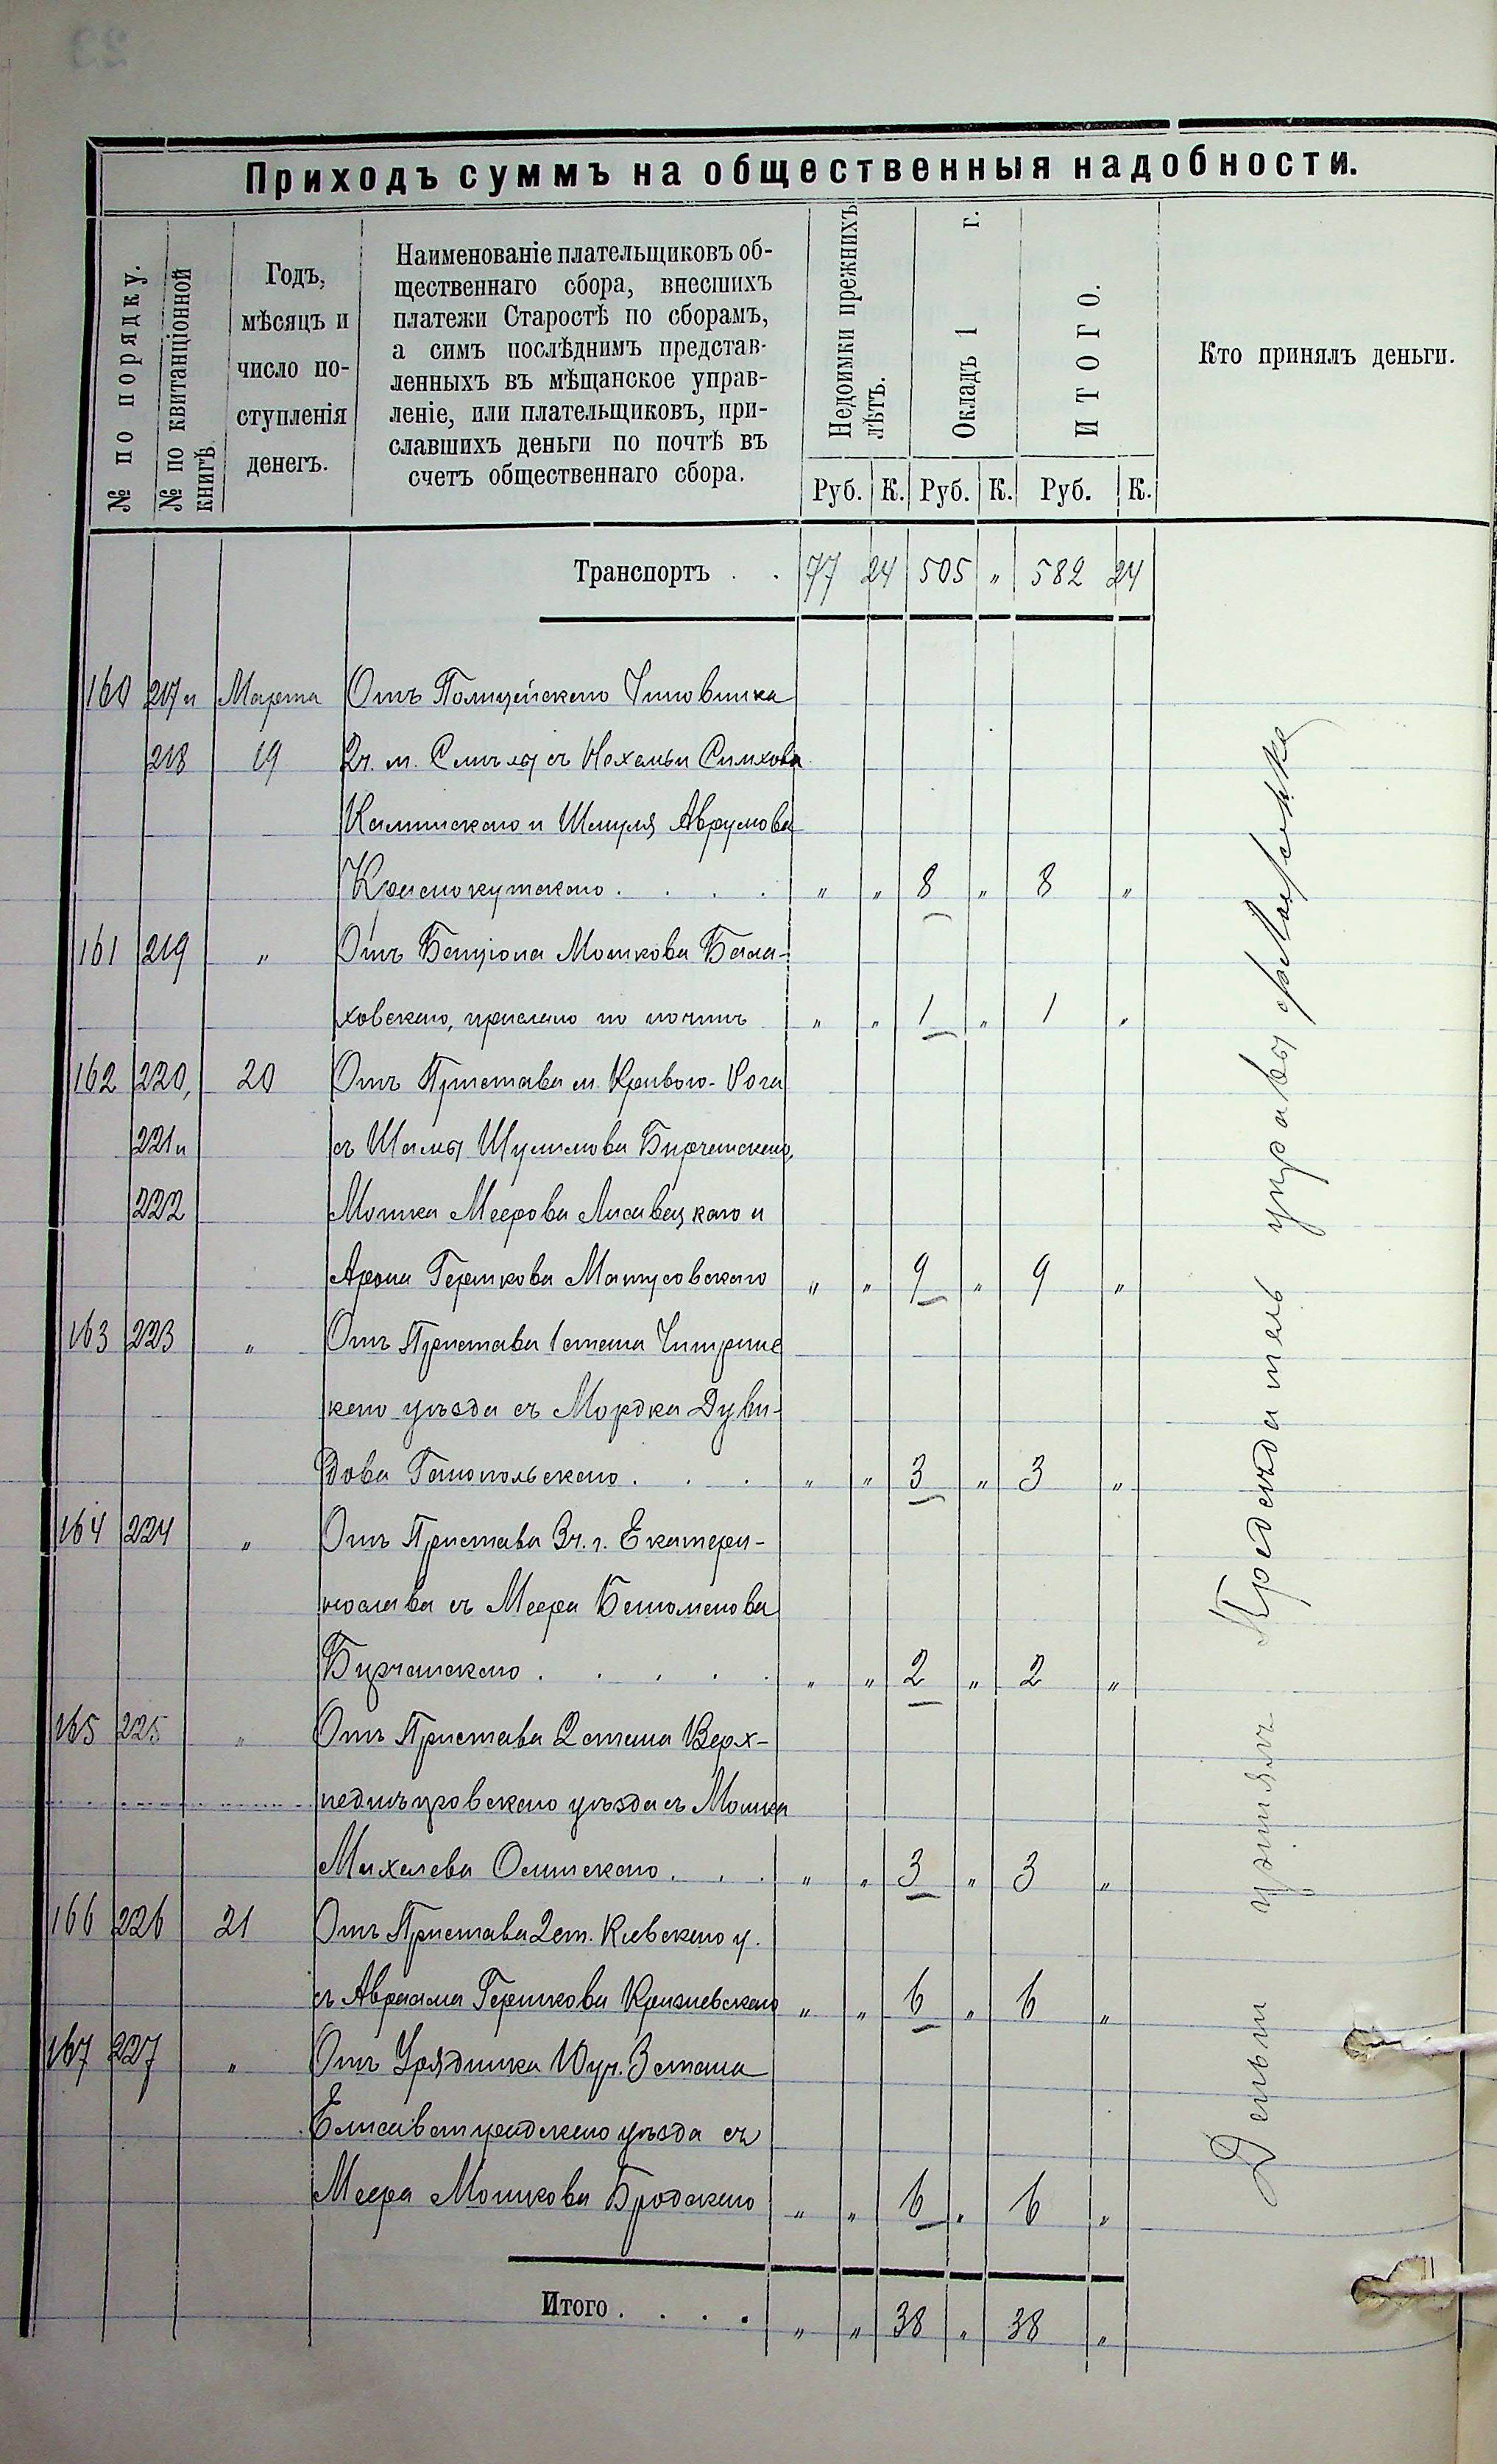 Приходъ суммъ на общественныя надобности.
№ по порядку.
№ по квитанціонной книгѣ
Годъ,
мѣсяцъ и
число по-
ступленія
денегъ.
Наименованіе плательщиковъ об-
щественнаго сбора, внесшихъ
платежи Старостѣ по сборамъ,
а симъ послѣднимъ представ-
ленныхъ въ мѣщанское управ-
леніе, или плательщиковъ, при-
славшихъ деньги по почтѣ въ
счетъ общественнаго сбора.
Недоимки прежнихъ лѣтъ.
Окладъ 1 г.
ИТОГО.
Кто принялъ деньги.
Руб. К. Руб. К. Руб. К.
Транспортъ . . 77 24 505 " 582 24
160 217 и Марта Отъ Полицейскаго Чиновника
218 19 2 ч. м. Смѣлы съ Нехемьи Симхова
Каминскаго и Шмуля Аврумова
Краснокутскаго . . . . " " 8 " 8 "
161 219 " Отъ Бенціона Мошкова Бала-
ховскаго, прислано по почтѣ " " 1 " 1 "
162 220, 20 Отъ Пристава м. Кривого-Рога
221 и съ Шамы Шулимова Бирченскаго,
222 Мошка Меерова Лисавецкаго и
Арона Гершкова Матусовскаго " " 9 " 9 "
163 223 " Отъ Пристава 1 стана Чигринс
каго уѣзда съ Мордка Дуви-
дова Ганопольскаго . . . " " 3 " 3 "
164 224 " Отъ Пристава 3 ч. г. Екатери-
нослава съ Меера Бенюменова
Бирченскаго . . . . . " " 2 " 2 "
165 225 " Отъ Пристава 2 стана Верх-
неднѣпровскаго уѣзда съ Мошка
Михелева Олинскаго . . . " " 3 " 3 "
166 226 21 Отъ Пристава 2 ст. Кіевскаго у.
съ Авраама Гершкова Кризневскаго " " 6 " 6 "
167 227 " Отъ Урядника 10 уч. 3 стана
Елисаветградскаго уѣзда съ
Меера Мошкова Бродскаго " " 6 " 6 "
Итого . . . . " " 38 " 38 "
Деньги принялъ Предсѣдатель управы